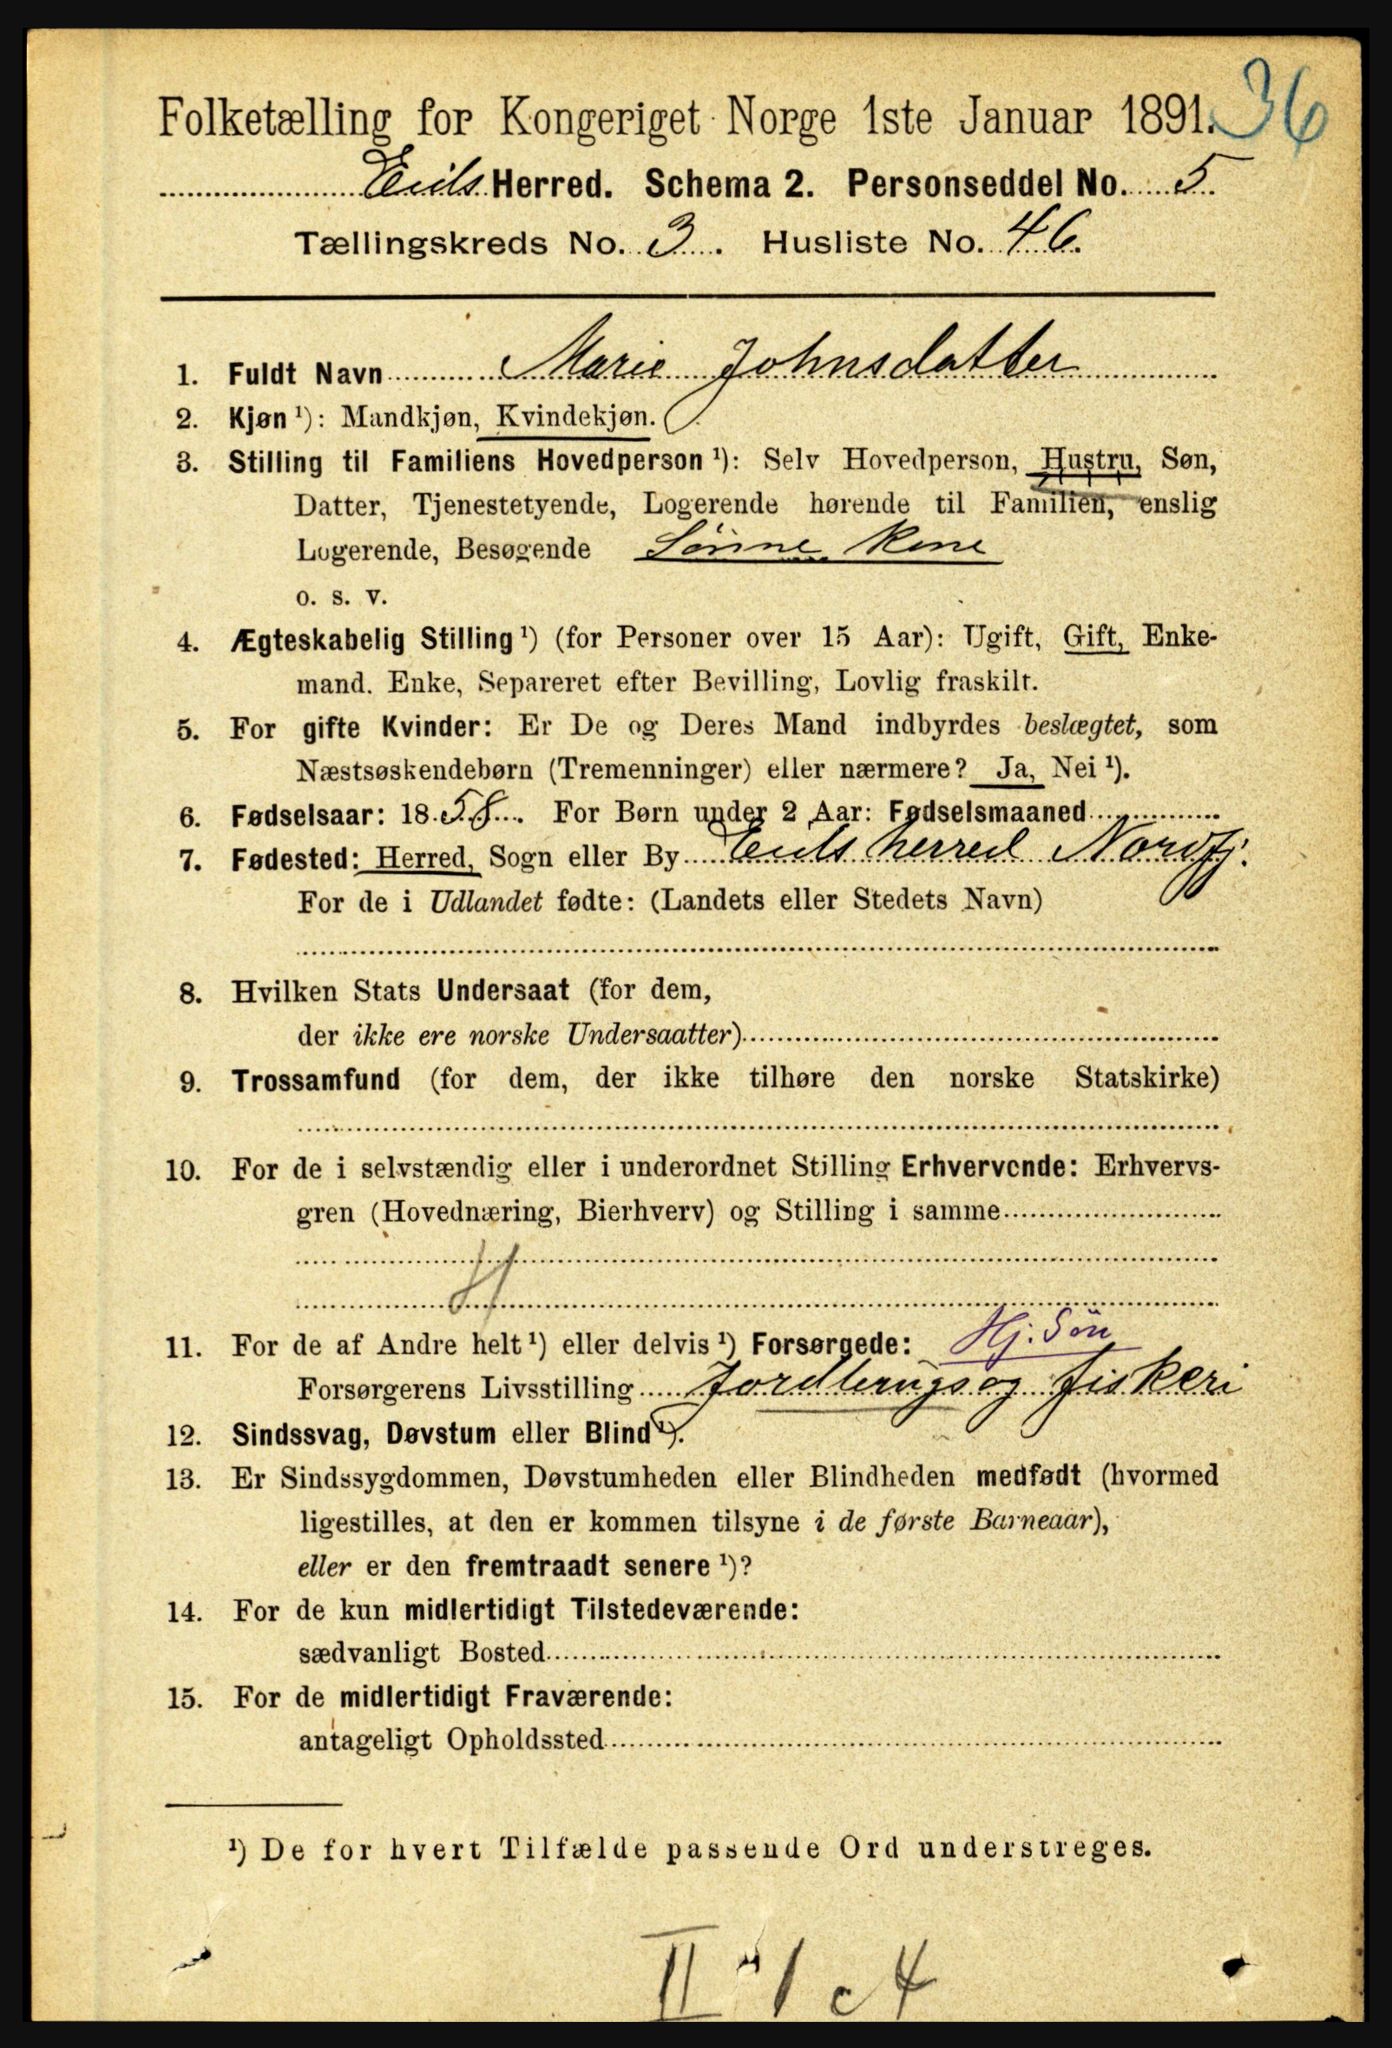 36
Folketælling for Kongeriget Norge 1ste Januar 1891.
Eids Herred. Schema 2. Personseddel No. 5.
Tællingskreds No. 3. Husliste No. 46.
1. Fuldt Navn Marie Johnsdatter
2. Kjøn ¹): Mandkjøn, Kvindekjøn.
3. Stilling til Familiens Hovedperson ¹): Selv Hovedperson, Hustru, Søn,
Datter, Tjenestetyende, Logerende hørende til Familien, enslig
Logerende, Besøgende Sønne Kone
o. s. v.
4. Ægteskabelig Stilling ¹) (for Personer over 15 Aar): Ugift, Gift, Enke-
mand. Enke, Separeret efter Bevilling, Lovlig fraskilt.
5. For gifte Kvinder: Er De og Deres Mand indbyrdes beslægtet, som
Næstsøskendebørn (Tremenninger) eller nærmere? Ja, Nei ¹).
6. Fødselsaar: 1858. For Børn under 2 Aar: Fødselsmaaned
7. Fødested: Herred, Sogn eller By Eids herred Nordfj.
For de i Udlandet fødte: (Landets eller Stedets Navn)
8. Hvilken Stats Undersaat (for dem,
der ikke ere norske Undersaatter)
9. Trossamfund (for dem, der ikke tilhøre den norske Statskirke)
10. For de i selvstændig eller i underordnet Stilling Erhvervende: Erhvervs-
gren (Hovednæring, Bierhverv) og Stilling i samme
H
11. For de af Andre helt ¹) eller delvis ¹) Forsørgede: Hj. Søn
Forsørgerens Livsstilling Jordbrugs og fiskeri
12. Sindssvag, Døvstum eller Blind ¹).
13. Er Sindssygdommen, Døvstumheden eller Blindheden medfødt (hvormed
ligestilles, at den er kommen tilsyne i de første Barneaar),
eller er den fremtraadt senere ¹)?
14. For de kun midlertidigt Tilstedeværende:
sædvanligt Bosted
15. For de midlertidigt Fraværende:
antageligt Opholdssted
¹) De for hvert Tilfælde passende Ord understreges.
II 1 c 4